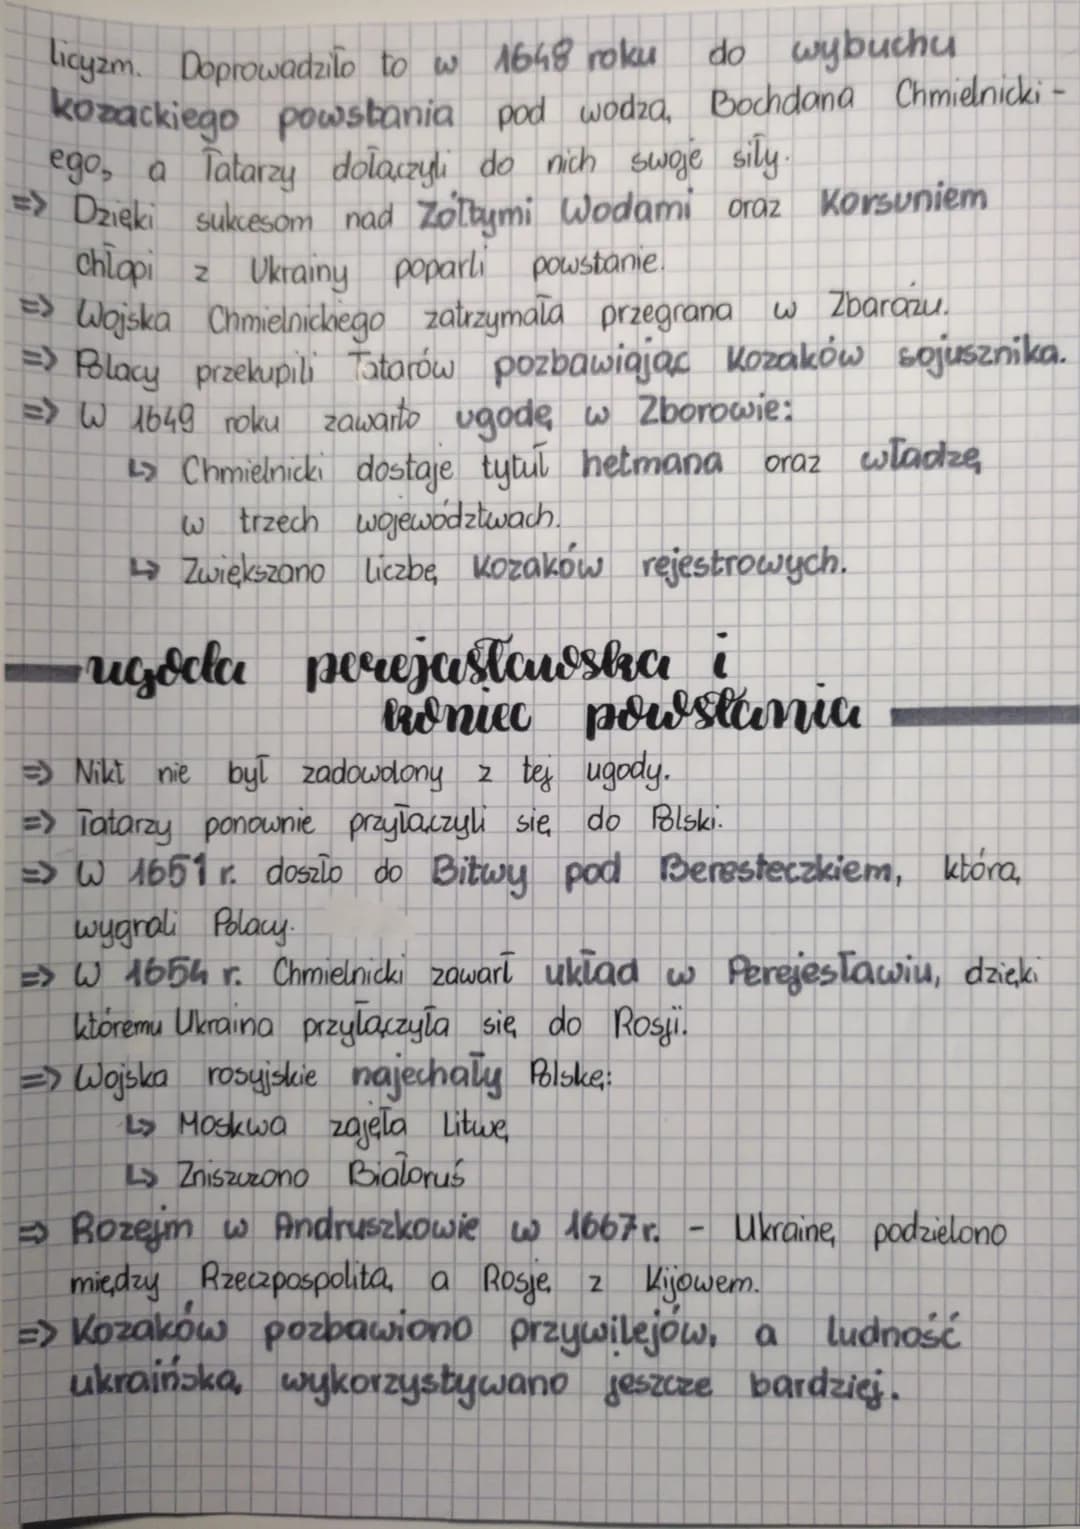 licyzm. Doprowadziło to w 1648 roku do wybuchu
kozackiego powstania pod wodzą Bochdana Chmielnicki-
ego, a Tatarzy dołączyli do nich swoje siły.
=> Dzięki sukcesom nad Żółtymi Wodami oraz Korsuniem
chłopi z Ukrainy poparli powstanie.
=> Wojska Chmielnickiego zatrzymała przegrana w Zbarażu.
=> Polacy przekupili Tatarów pozbawiając Kozaków sojusznika.
=> W 1649 roku zawarto ugodę w Zborowie:
↳ Chmielnicki dostaje tytuł hetmana oraz władzę
w trzech województwach.
↳ Zwiększono liczbę Kozaków rejestrowych.
ugoda perejasławska i
koniec powstania
=> Nikt nie był zadowolony z tej ugody.
=> Tatarzy ponownie przyłączyli się do Polski.
=> W 1651 r. doszło do Bitwy pod Beresteczkiem, którą
wygrali Polacy.
=> W 1654 r. Chmielnicki zawarł układ w Perejesławiu, dzięki
któremu Ukraina przyłączyła się do Rosji.
=> Wojska rosyjskie najechały Polskę:
↳ Moskwa zajęła Litwę
↳ Zniszczono Białoruś
=> Rozejm w Andruszkowie w 1667 r. - Ukrainę podzielono
między Rzeczpospolitą a Rosję z Kijowem.
=> Kozaków pozbawiono przywilejów, a ludność
ukraińską wykorzystywano jeszcze bardziej.